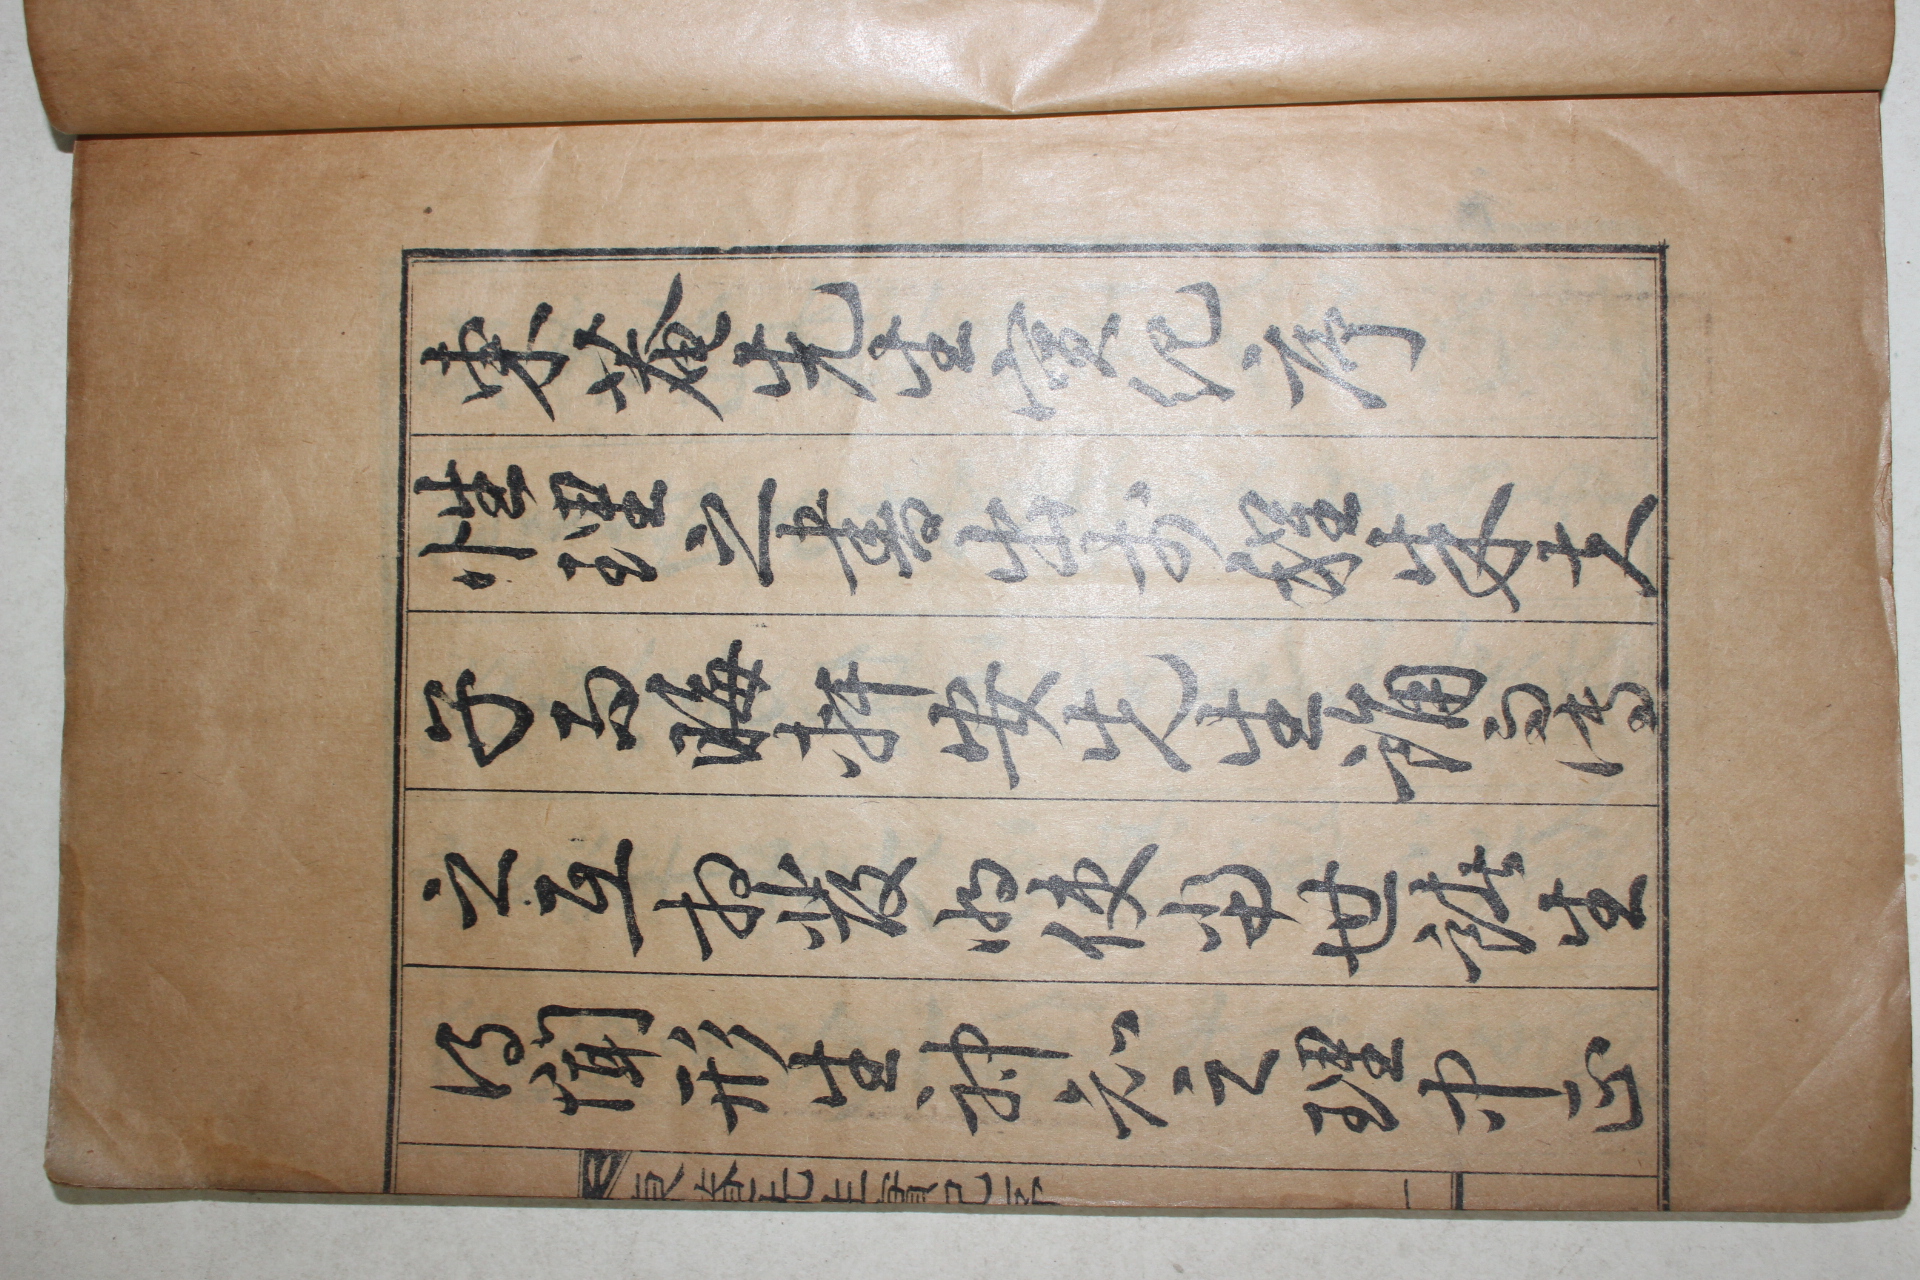 東菴先生實紀序
性理之書出於程朱夫
子而晦軒安先生誦而傳
之互相發明使當世諸生
得聞形生神知之理中正
東菴先生實紀序 一